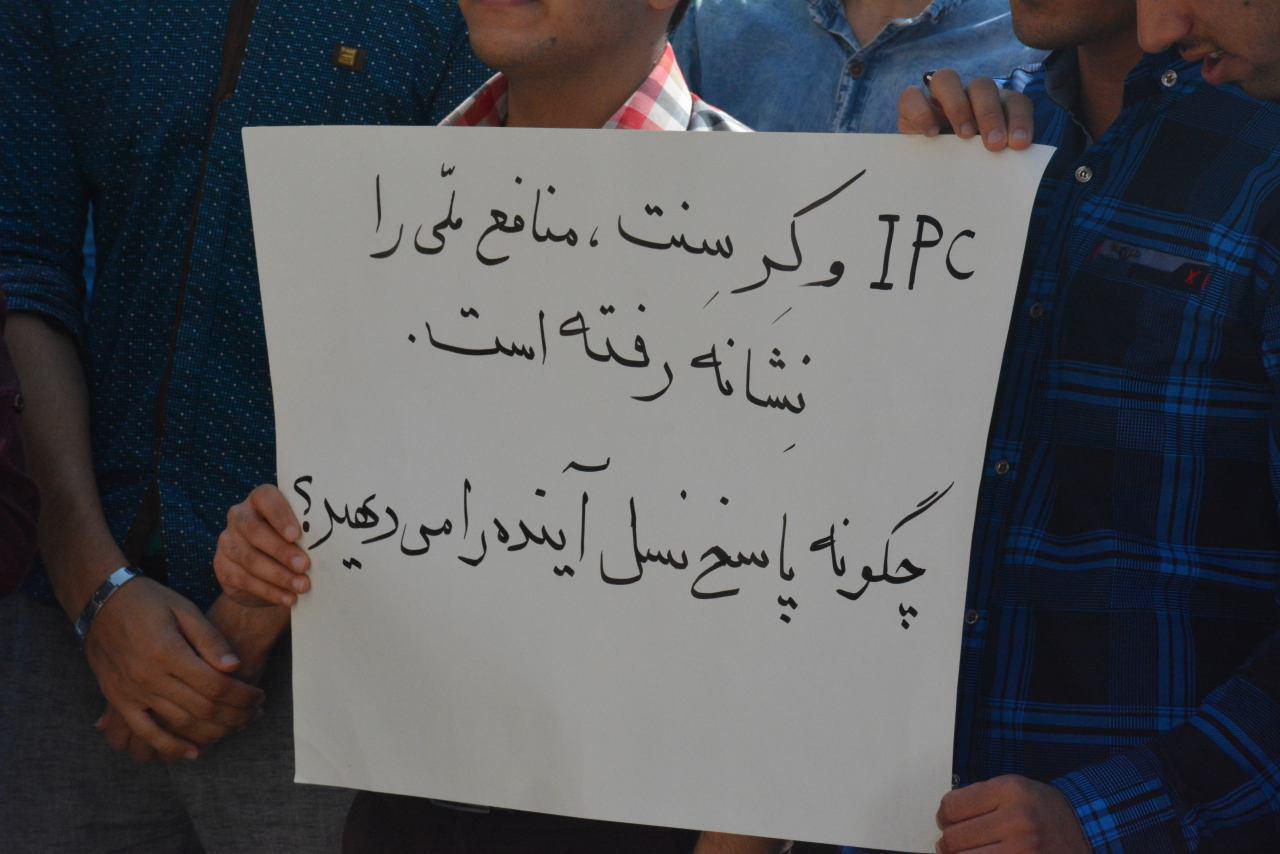 IPC و کرِسِنت، منافع ملّی را
نِشانَه رفته است.
چگونه پاسخ نسل آینده را می دهید؟